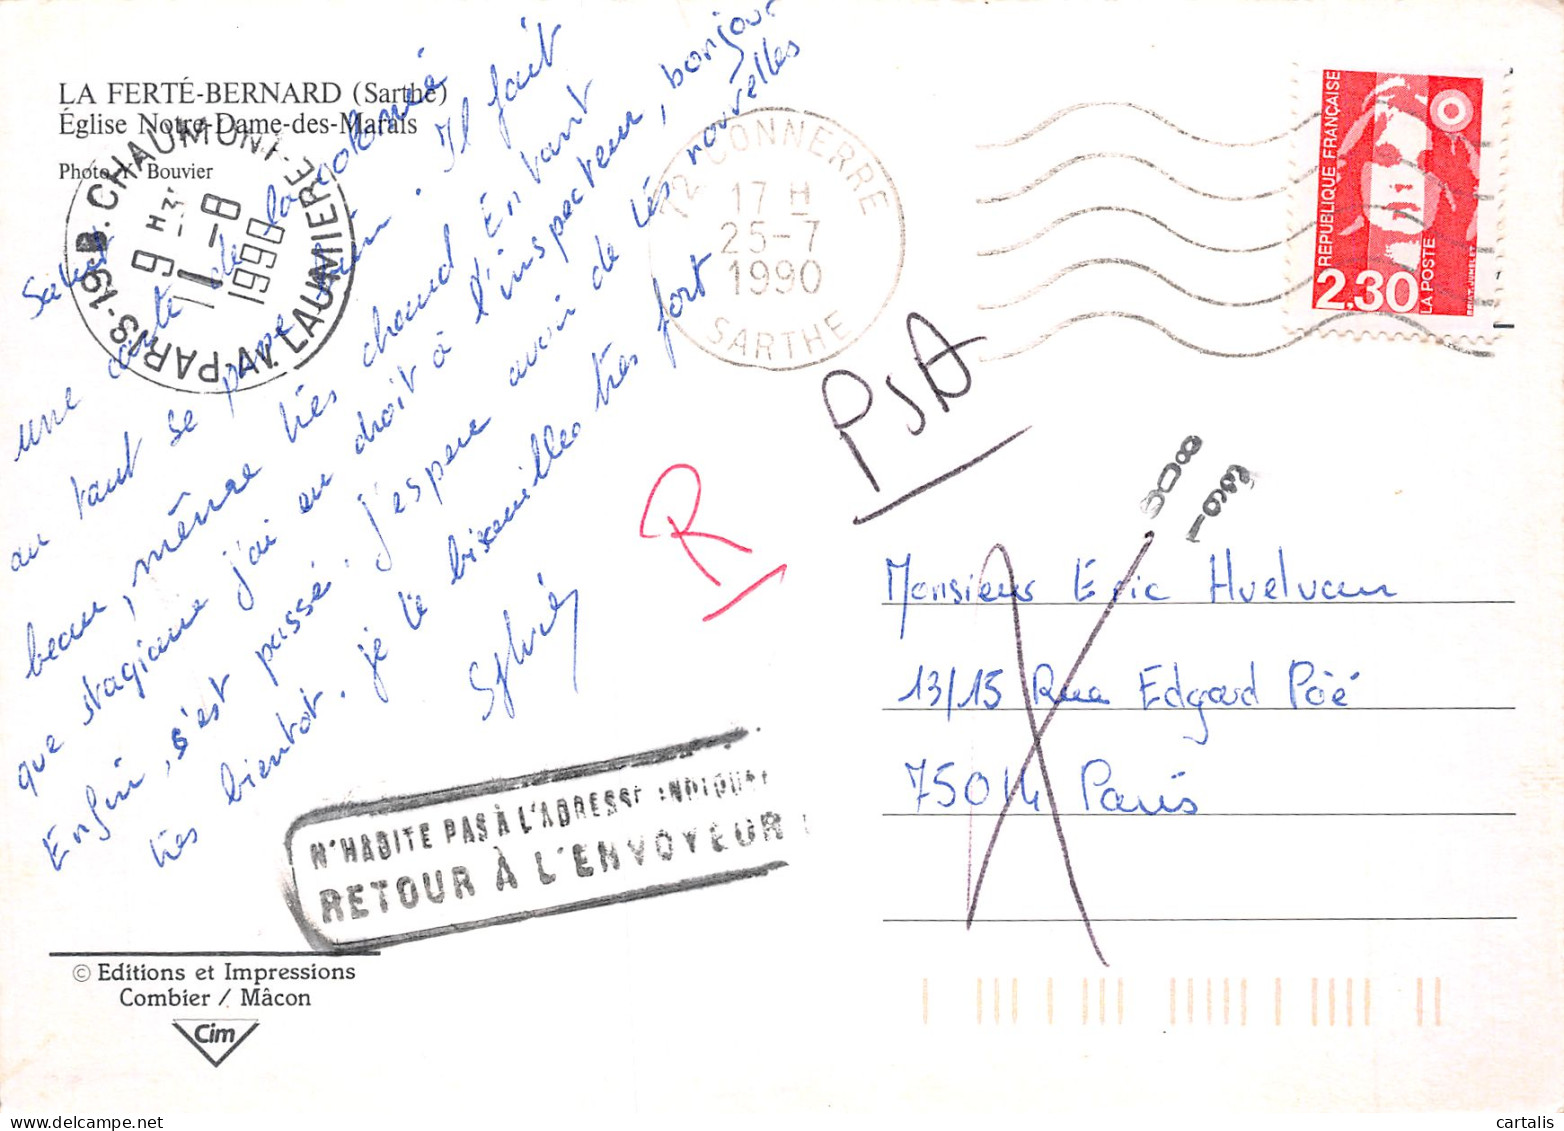 LA FERTÉ-BERNARD (Sarthe)
Église Notre-Dame-des-Marais
Photo Y. Bouvier
PARIS-19 B. CHAUMONT-LAUMIERE
9 H
11-8
1990
72 CONNERRE
17 H
25-7
1990
SARTHE
RÉPUBLIQUE FRANÇAISE
2.30
LA POSTE
Salut
une carte de la colonie
où tout se passe bien. Il fait
beau, même très chaud. En tant
que stagiaire j'ai eu droit à l'inspecteur, bonjour
Enfin, s'est passé. J'espere avoir de tes nouvelles
très bientot. je te bisouilles très fort
Sylvie
PSA
R
808
19-3
Monsieur Eric Huelvan
13/15 Rue Edgard Pöé
75014 Paris
N'HABITE PAS À L'ADRESSE INDIQUÉE
RETOUR À L'ENVOYEUR
© Editions et Impressions
Combier / Mâcon
Cim
cartalis